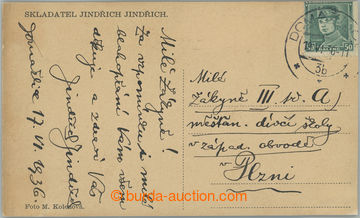 SKLADATEL JINDŘICH JINDŘICH.
Milé žákyně!
Za vzpomínku mé
blahopřání Vám všem
děkuje a zdraví Vás
Jindřich Jindřich
Domažlice 17. VI. 1936.
Foto M. Kolesová.
DOMAŽ
36
50
Milé
žákyně III. tř. A)
měšťan. dívčí školy
v západ. obvodě
v Plzni
burda-auction.com